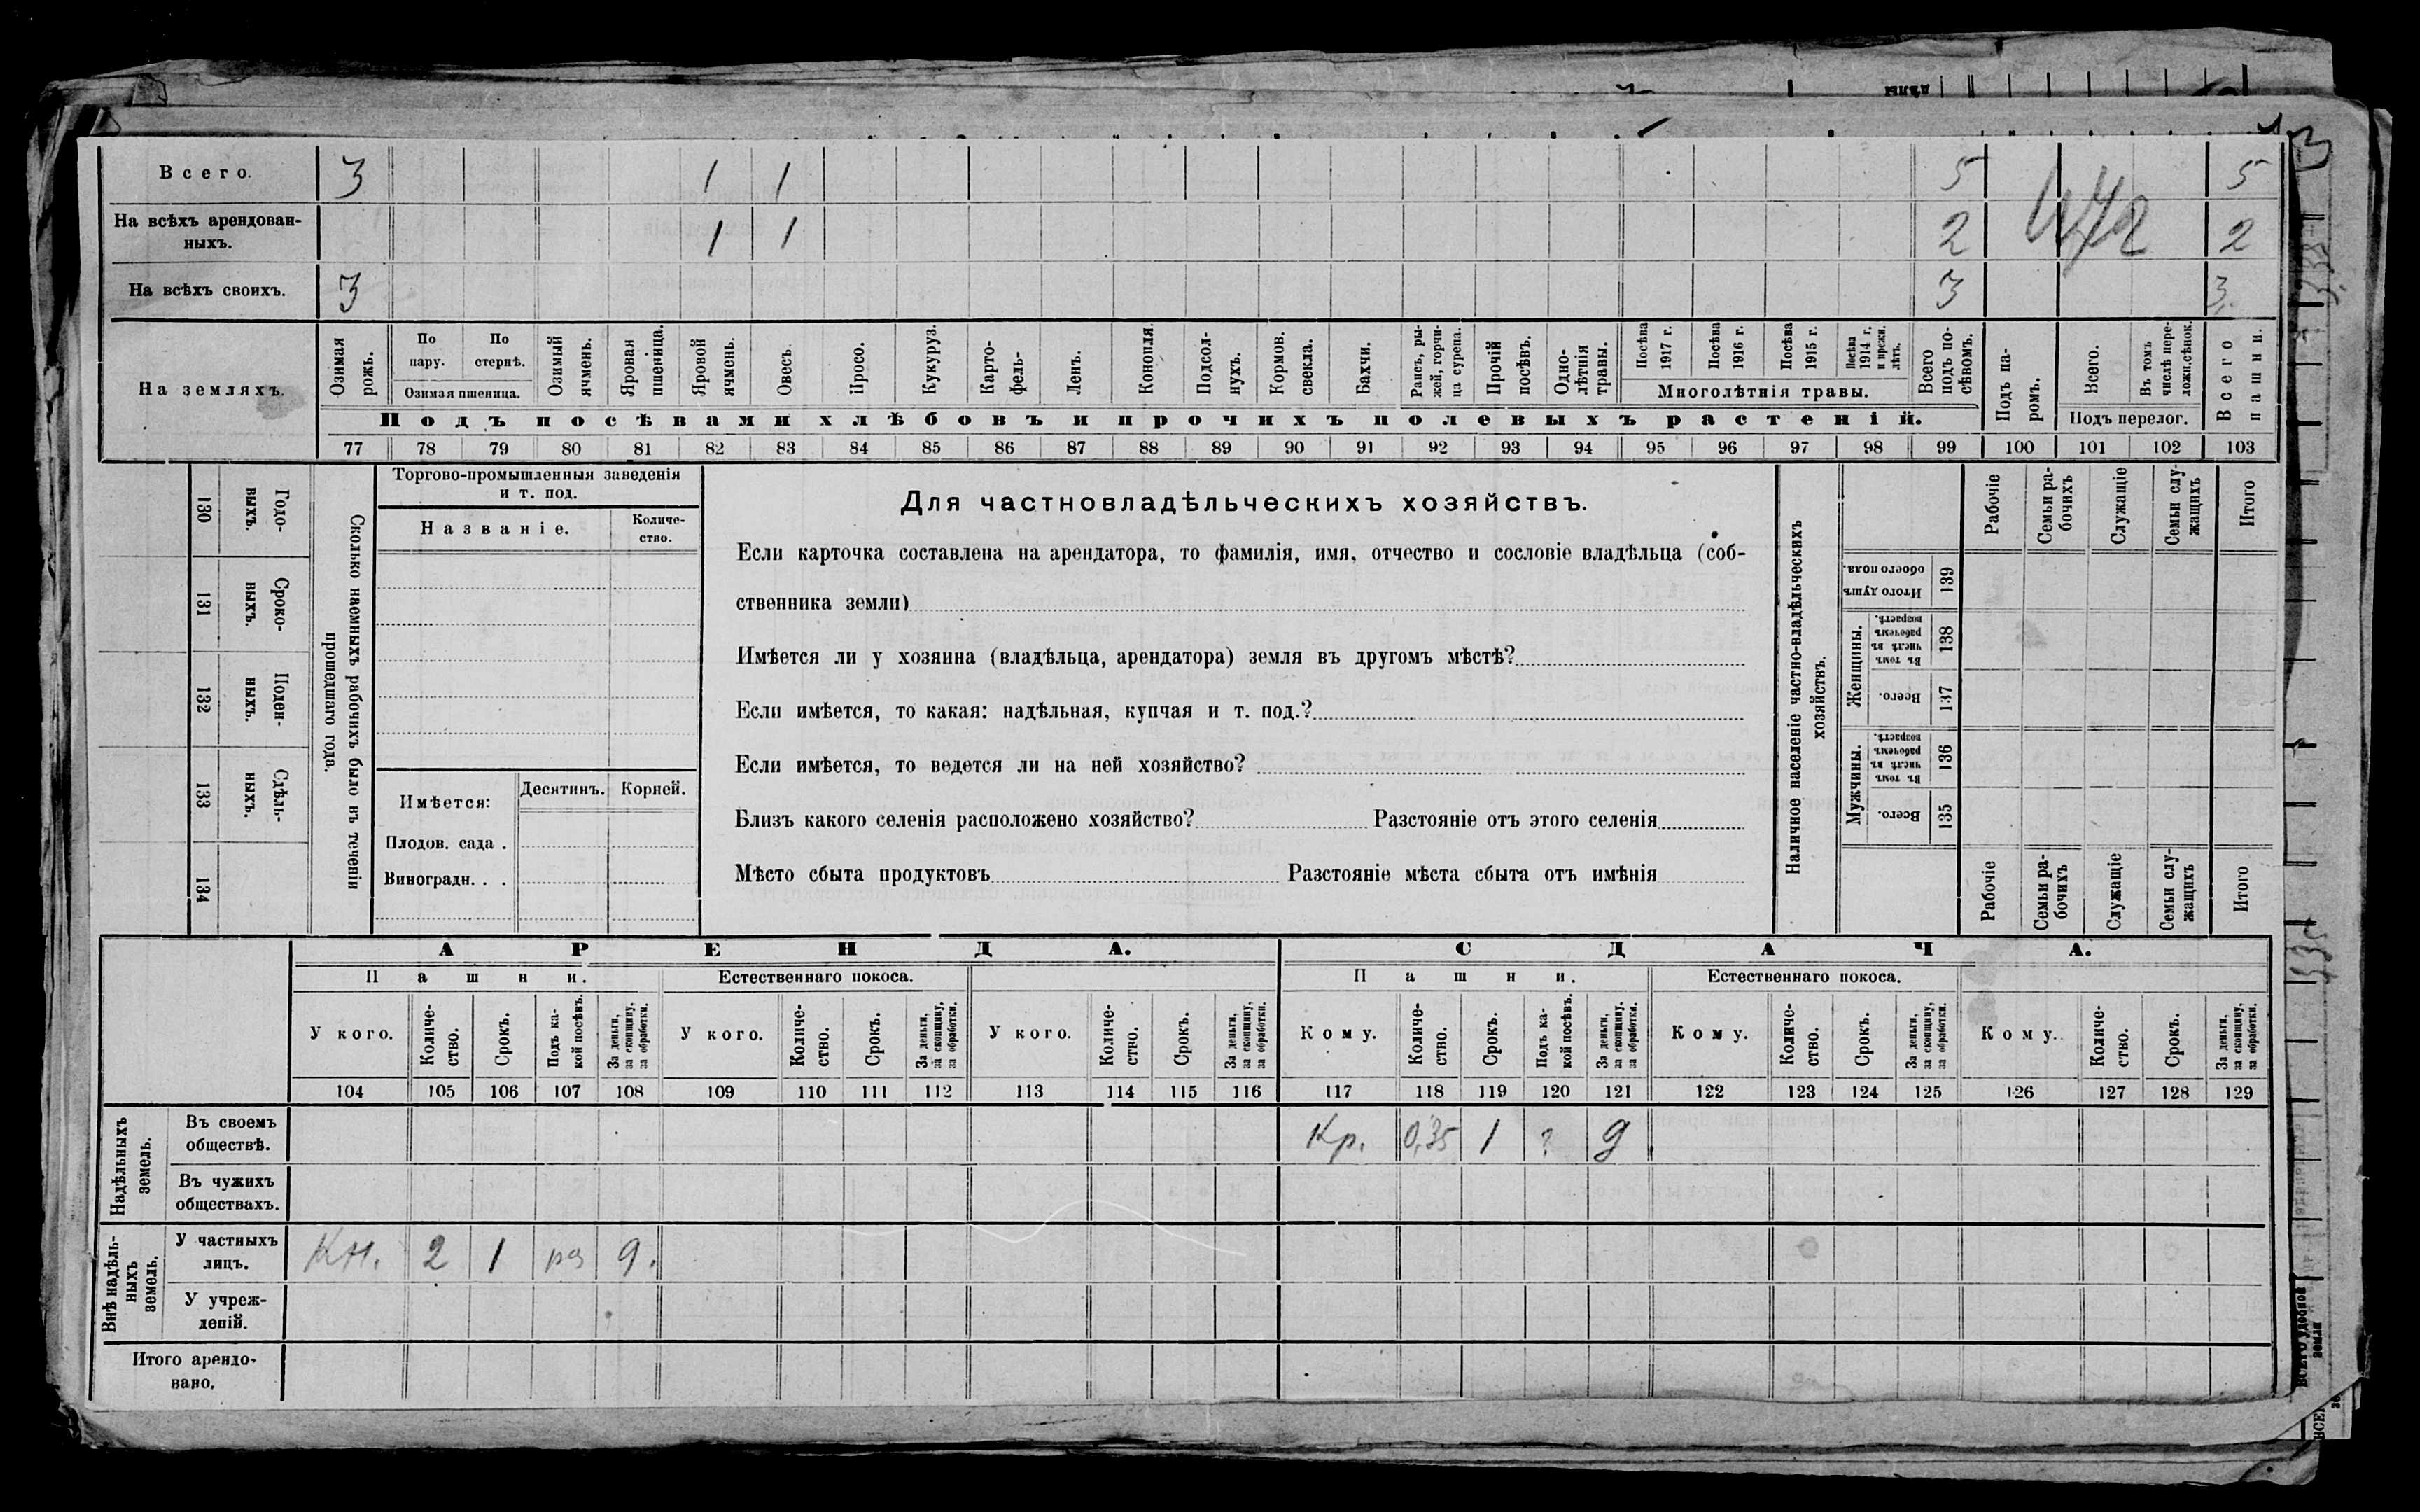 Всего. 3 1 1 5 5
На всѣхъ арендован-
ныхъ. 1 1 2 2
На всѣхъ своихъ. 3 3 3
На земляхъ.
Озимая рожь.
По пару.
По стернѣ.
Озимая пшеница.
Озимый ячмень.
Яровая пшеница.
Яровой ячмень.
Овесъ.
Просо.
Кукуруз.
Карто-
фель-
Ленъ.
Конопля.
Подсол-
нухъ.
Кормов. свекла.
Бахчи.
Рапсъ, ры-
жей, горчи-
ца сурепа.
Прочій посѣвъ.
Одно-
лѣтнія травы.
Посѣва 1917 г.
Посѣва 1916 г.
Посѣва 1915 г.
Посѣва 1914 г. и прежн. лѣтъ.
Многолѣтнія травы.
Всего подъ по-
сѣвомъ.
Подъ па-
ромъ.
Всего.
Въ томъ числѣ пере-
ложн. сѣнок.
Подъ перелог.
Всего пашни.
Подъ посѣвами хлѣбовъ и прочихъ полевыхъ растеній.
77 78 79 80 81 82 83 84 85 86 87 88 89 90 91 92 93 94 95 96 97 98 99 100 101 102 103
130 Годо-
выхъ.
131 Сроко-
ныхъ.
132 Поден-
ныхъ.
133 Сдѣль-
ныхъ.
134
Сколько наемныхъ рабочихъ было въ теченіи
прошедшаго года.
Торгово-промышленныя заведенія
и т. под.
Названіе.
Количе-
ство.
Имѣется:
Десятинъ. Корней.
Плодов. сада .
Виноградн. . .
Для частновладѣльческихъ хозяйствъ.
Если карточка составлена на арендатора, то фамилія, имя, отчество и сословіе владѣльца (соб-
ственника земли)
Имѣется ли у хозяина (владѣльца, арендатора) земля въ другомъ мѣстѣ?
Если имѣется, то какая: надѣльная, купчая и т. под.?
Если имѣется, то ведется ли на ней хозяйство?
Близъ какого селенія расположено хозяйство? Разстояніе отъ этого селенія
Мѣсто сбыта продуктовъ Разстояніе мѣста сбыта отъ имѣнія
Наличное населеніе частно-владѣльческихъ
хозяйствъ.
Рабочіе
Семьи ра-
бочихъ
Служащіе
Семьи слу-
жащихъ
Итого
Итого душъ обоего пола. 139
Женщины.
Въ томъ числѣ въ рабочемъ возрастѣ. 138
Всего. 137
Мужчины.
Въ томъ числѣ въ рабочемъ возрастѣ. 136
Всего. 135
Рабочіе
Семьи ра-
бочихъ
Служащіе
Семьи слу-
жащихъ
Итого
АРЕНДА. СДАЧА.
Пашни. Естественнаго покоса. Пашни. Естественнаго покоса.
У кого.
Количе-
ство.
Срокъ.
Подъ ка-
кой посѣвъ.
За деньги, за скопщину, за обработки.
У кого.
Количе-
ство.
Срокъ.
За деньги, за скопщину, за обработки.
У кого.
Количе-
ство.
Срокъ.
За деньги, за скопщину, за обработки.
Кому.
Количе-
ство.
Срокъ.
Подъ ка-
кой посѣвъ.
За деньги, за скопщину, за обработки.
Кому.
Количе-
ство.
Срокъ.
За деньги, за скопщину, за обработки.
Кому.
Количе-
ство.
Срокъ.
За деньги, за скопщину, за обработки.
104 105 106 107 108 109 110 111 112 113 114 115 116 117 118 119 120 121 122 123 124 125 126 127 128 129
Надѣльныхъ земель.
Въ своемъ
обществѣ. Кр. 0,35 1 ? д
Въ чужихъ
обществахъ.
Внѣ надѣль-
ныхъ земель.
У частныхъ
лицъ. Кн. 2 1 рз д.
У учреж-
деній.
Итого арендо-
вано.